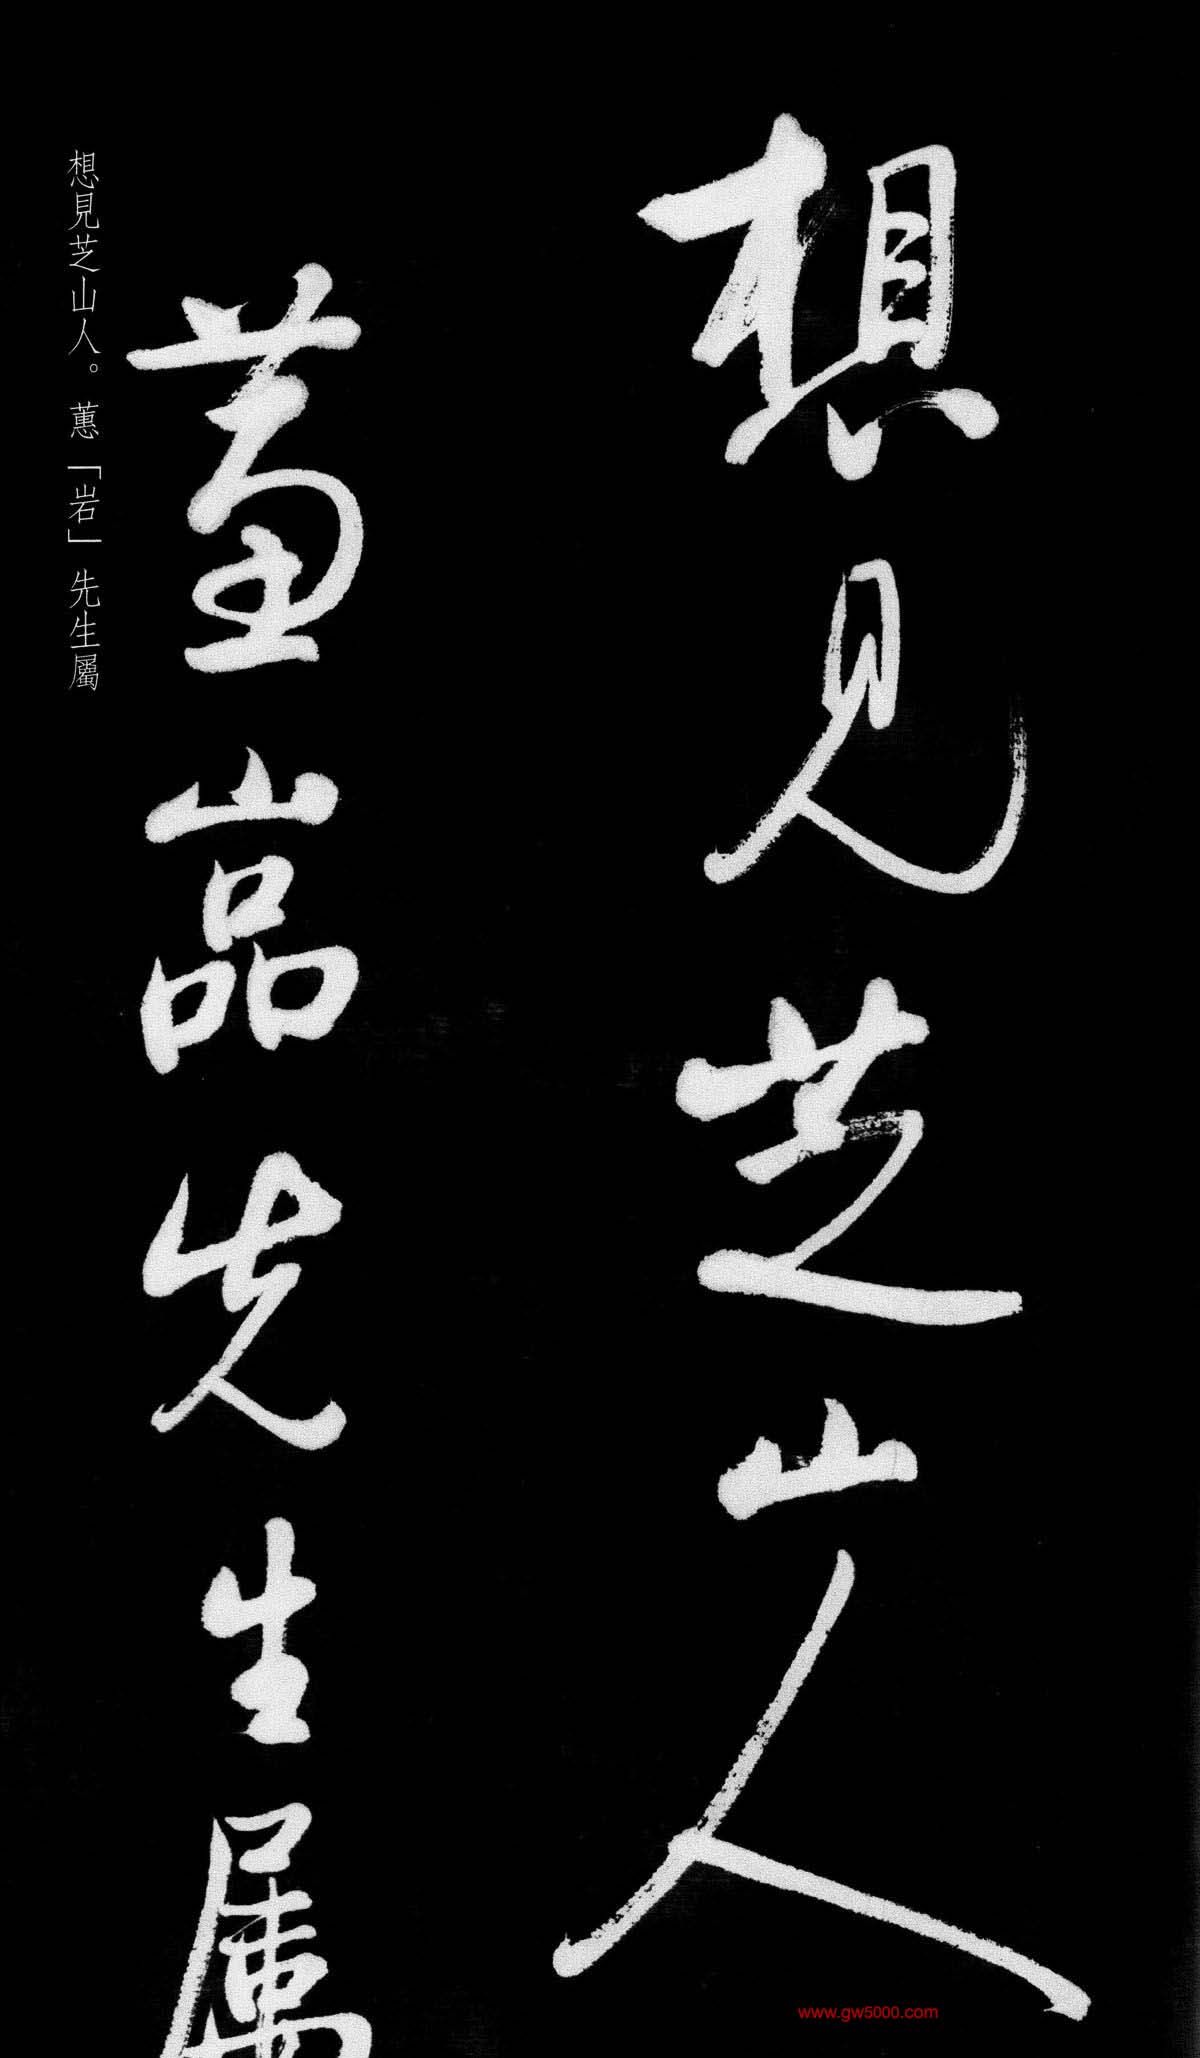 想見芝山人
蕙嵒先生屬
想見芝山人。蕙「岩」先生屬
www.gw5000.com